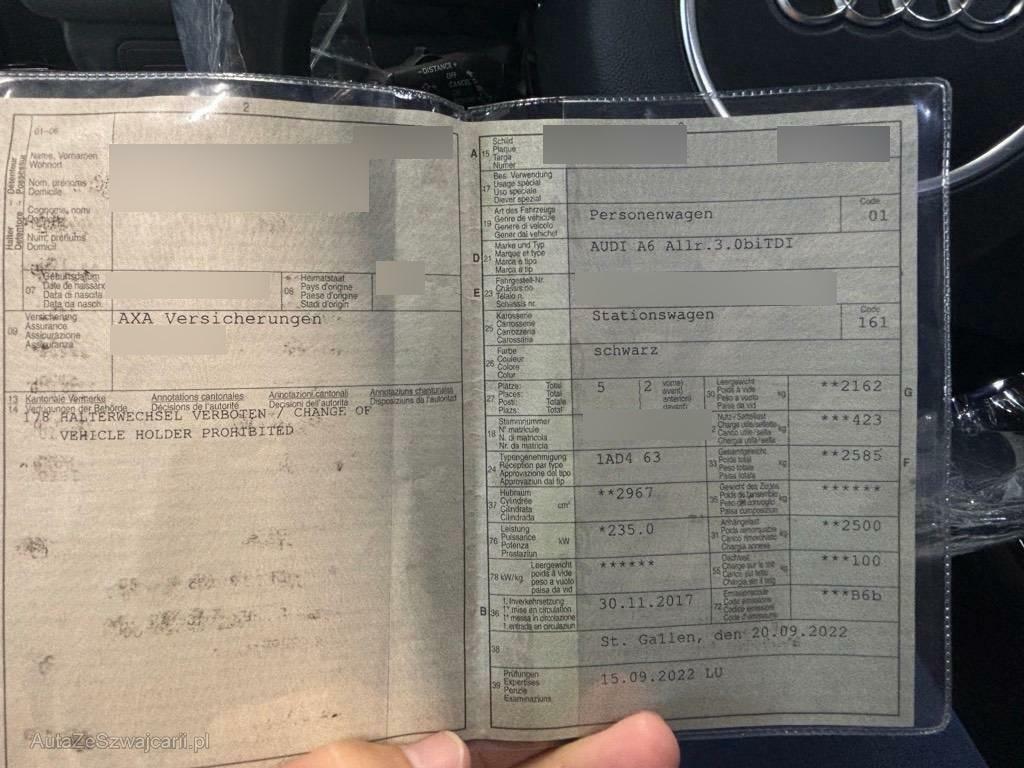 -DISTANCE+
2
01-06
Name, Vornamen
Wohnort
Nom, prénoms
Domicile
Cognome, nomi
Num, prenums
Domicil
07
Geburtsdatum
Date de naissance
Data di nascita
Data da nasch.
08
Heimatstaat
Pays d'origine
Paese d'origine
Stadi d'origin
09
Versicherung
Assurance
Assicurazione
Assicuranza
AXA Versicherungen
13 Kantonale Vermerke
Annotations cantonales
Annotazioni cantonali
Annotaziuns chantunalas
14 Verfügungen der Behörde
Décisions de l'autorité
Decisioni dell'autorità
Disposiziuns da l'autoritad
178 HALTERWECHSEL VERBOTEN / CHANGE OF
VEHICLE HOLDER PROHIBITED
A
15
Schild
Plaque
Targa
Numer
17
Bes. Verwendung
Usage spécial
Uso speciale
Diever spezial
19
Art des Fahrzeugs
Genre de véhicule
Genere di veicolo
Gener dal vehichel
Personenwagen
Code
01
D
21
Marke und Typ
Marque et type
Marca e tipo
Marca e tip
AUDI A6 Allr.3.0biTDI
E
23
Fahrgestell-Nr.
Châssis no
Telaio n.
Schassis nr.
25
Karosserie
Carrosserie
Carrozzeria
Carossaria
Stationswagen
Code
161
26
Farbe
Couleur
Colore
Colur
schwarz
27
Plätze: Total
Places: Total
Posti: Totale
Plazs: Total
5
2
vorne
avant
anteriori
davant
30
Leergewicht
Poids à vide
Peso a vuoto
Paisa da vid
kg
**2162
G
18
Stammnummer
N° matricule
N. di matricola
Nr. da matricla
Nutz-/Sattellast
Charge utile/sellette
Carico utile/sella
Chargia utile/sella
kg
***423
24
Typengenehmigung
Réception par type
Approvazione del tipo
Approvaziun dal tip
1AD4 63
33
Gesamtgewicht
Poids total
Peso totale
Paisa totala
kg
**2585
F
37
Hubraum
Cylindrée
Cilindrata
Cilindrada
cm³
**2967
35
Gewicht des Zuges
Poids de l'ensemble
Peso del convoglio
Paisa cumposiziun
kg
******
76
Leistung
Puissance
Potenza
Prestaziun
kW
*235.0
31
Anhängelast
Poids remorquable
Carico rimorchiato
Chargia annexa
kg
**2500
78 kW/kg
Leergewicht
poids à vide
peso a vuoto
paisa da vid
******
55
Dachlast
Charge sur le toit
Carico sul tetto
Chargia sin il tetg
kg
***100
B
36
1. Inverkehrsetzung
1re mise en circulation
1a messa in circolazione
1. entrada en circulaziun
30.11.2017
72
Emissionscode
Code émissions
Codice emissioni
Code d'emissiuns
***B6b
38
St. Gallen, den 20.09.2022
39
Prüfungen
Expertises
Perizie
Examinaziuns
15.09.2022 LU
AutaZeSzwajcarii.pl